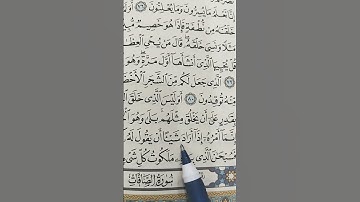 إِنَّا نَعْلَمُ مَا يُسِرُّونَ وَمَا يُعْلِنُونَ ٧٦
خَلَقْنَٰهُ مِن نُّطْفَةٍ فَإِذَا هُوَ خَصِيمٌ
مَثَلًا وَنَسِىَ خَلْقَهُۥ قَالَ مَن يُحْىِ ٱلْعِظَ
يُحْيِيهَا ٱلَّذِىٓ أَنشَأَهَآ أَوَّلَ مَرَّةٍ وَهُوَ
٧٩ ٱلَّذِى جَعَلَ لَكُم مِّنَ ٱلشَّجَرِ ٱلْأَخْضَ
مِّنْهُ تُوقِدُونَ ٨٠ أَوَلَيْسَ ٱلَّذِى خَلَقَ
بِقَٰدِرٍ عَلَىٰٓ أَن يَخْلُقَ مِثْلَهُم بَلَىٰ وَهُوَ
إِنَّمَآ أَمْرُهُۥٓ إِذَآ أَرَادَ شَيْـًٔا أَن يَقُولَ لَهُۥ
فَسُبْحَٰنَ ٱلَّذِى مَلَكُوتُ كُلِّ شَىْ
سُورَةُ الصَّافَّاتِ